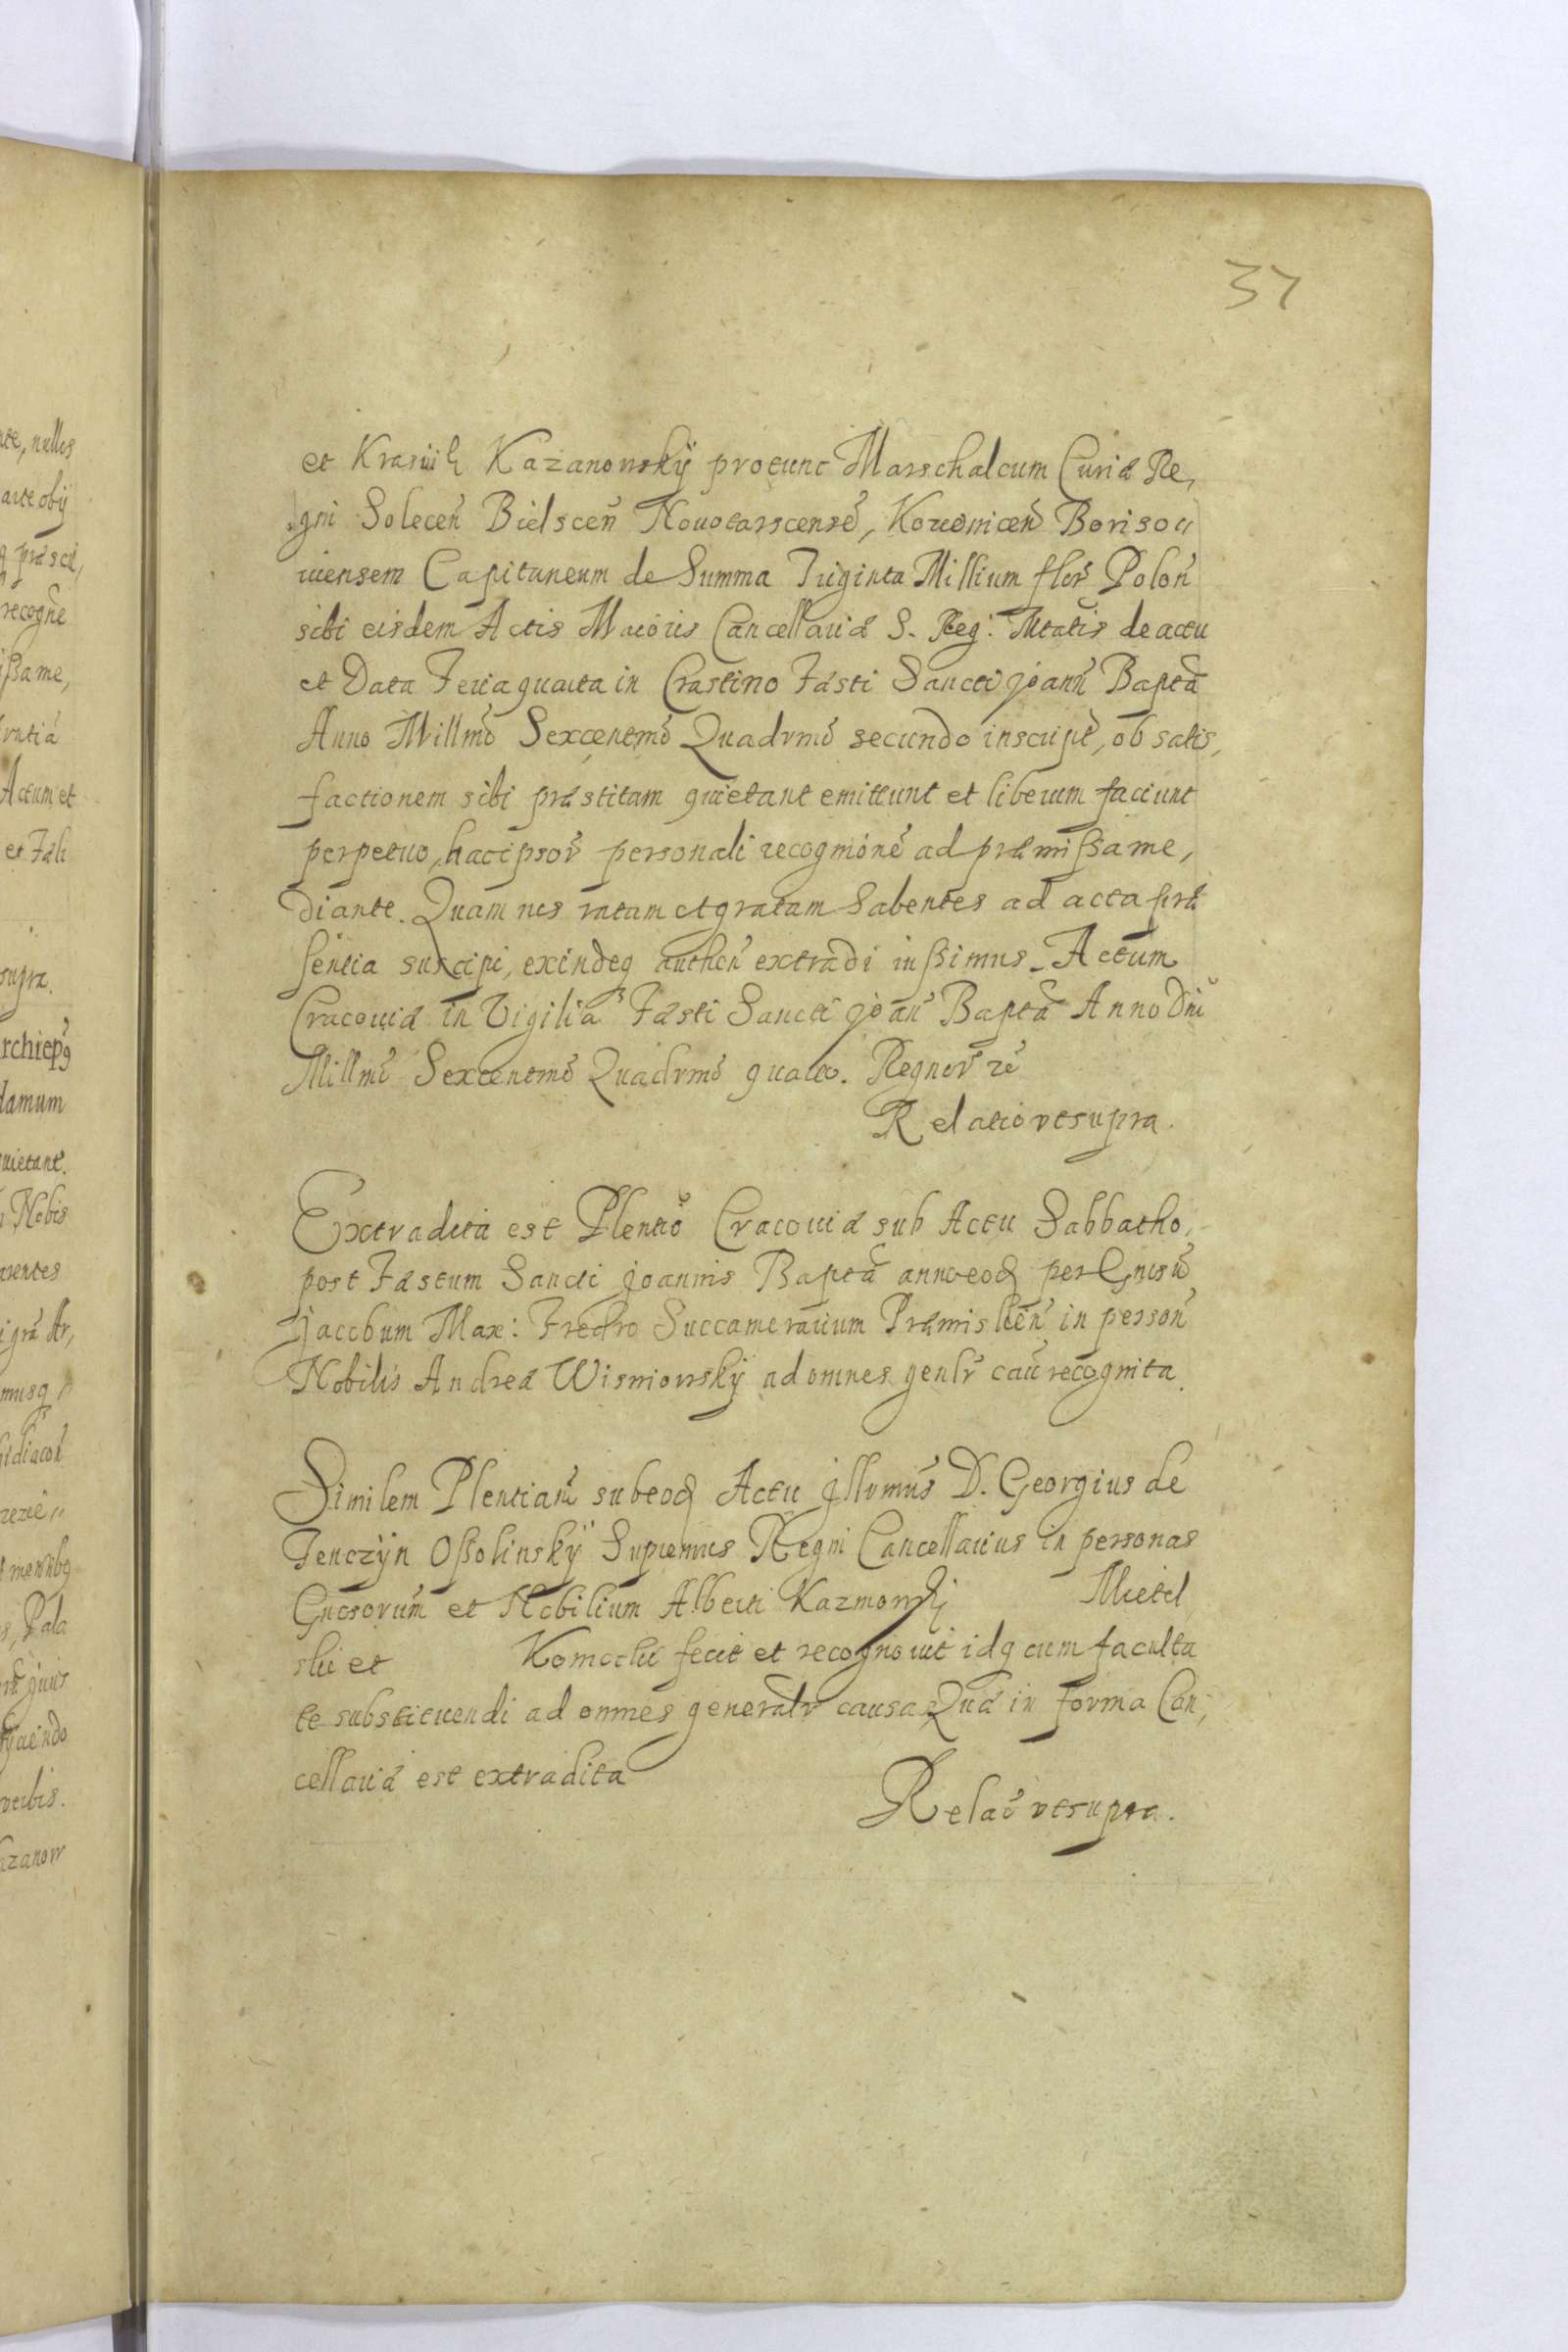 37
et Krasnik Kazanowskÿ protunc Marschalcum Curiæ Re,
gni Solecen̄ Bielscen̄ Nouotarscensē, Kozienicen̄ Borisou
uiensem Capitaneum de Summa Triginta Millium flor̄ Polon̄
sibi eisdem Actis Maioris Cancellariæ S. Reg: Mtatis de actu
et Data Feria quarta in Crastino Fæsti Sancti Joann̄ Baptā
Anno Millmō Sexcentmō Quadrmō secundo inscript̄, ob satis,
factionem sibi præstitam quietant emittunt et liberum faciunt
perpetuo, hac ipsor̄ personali recognionē ad præmissa me,
diante. Quam nos ratam et gratam habentes ad acta præ
sentia suscipi, exindeq authen̄ extradi iussimus. Actum
Cracouiæ in Vigilia Fæsti Sancti Joan̄ Baptā Anno Dni
Millmō Sexcentmō Quadrmō quarto. Regnor̄ rē
Relatio vt supra.
Extradita est Plentiō Cracouiæ sub Actu Sabbatho,
post Fæstum Sancti Joannis Baptā anno eod per Gnosū
Jacobum Max: Fredro Succamerarium Præmislien̄ in person̄
Nobilis Andreæ Wisniowskÿ ad omnes genlr̄ cau̅ recognita.
Similem Plentiam̄ sub eod Actu Jllvmūs D. Georgius de
Tenczÿn Ossolinskÿ Supremus Regni Cancellarius in personas
Gnosorum̄ et Nobilium Alberti Kazmowski Mietel
ski et Komocki fecit et recognouit idq cum faculta
te substituendi ad omnes generalr causas Quæ in forma Can,
cellariæ est extradita
Relaō vt supra.